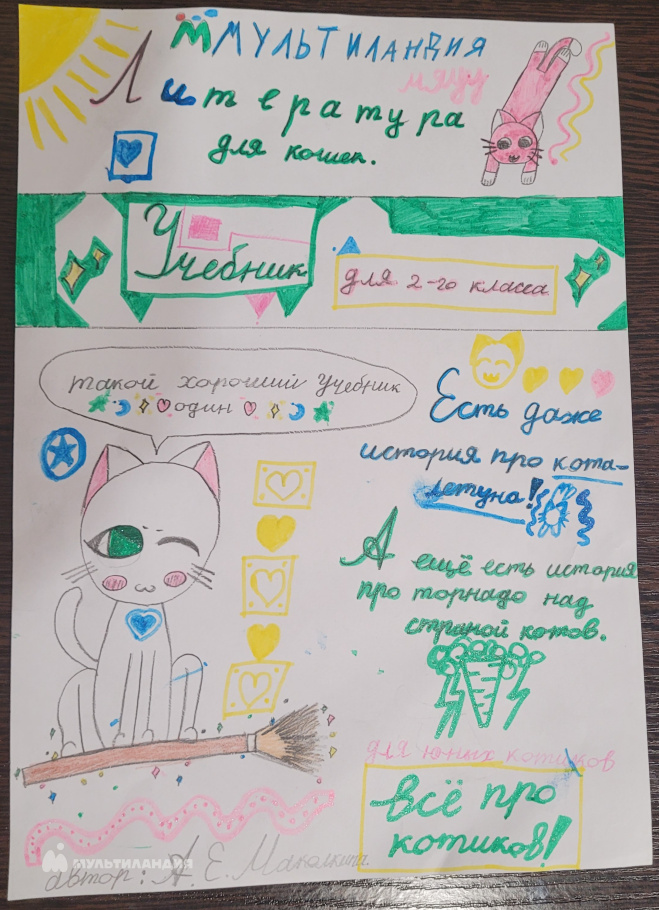 М МУЛЬТИЛАНДИЯ
мяуу
Литература
для кошек.
Учебник
для 2-го класса
такой хороший Учебник
один
Есть даже
история про кота-
летуна!
А ещё есть история
про торнадо над
страной котов.
для юных котиков
всё про
котиков!
МУЛЬТИЛАНДИЯ
автор: А. Е.